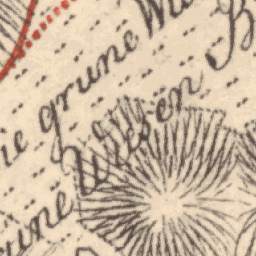 ie grune Wie
une Wiesen B